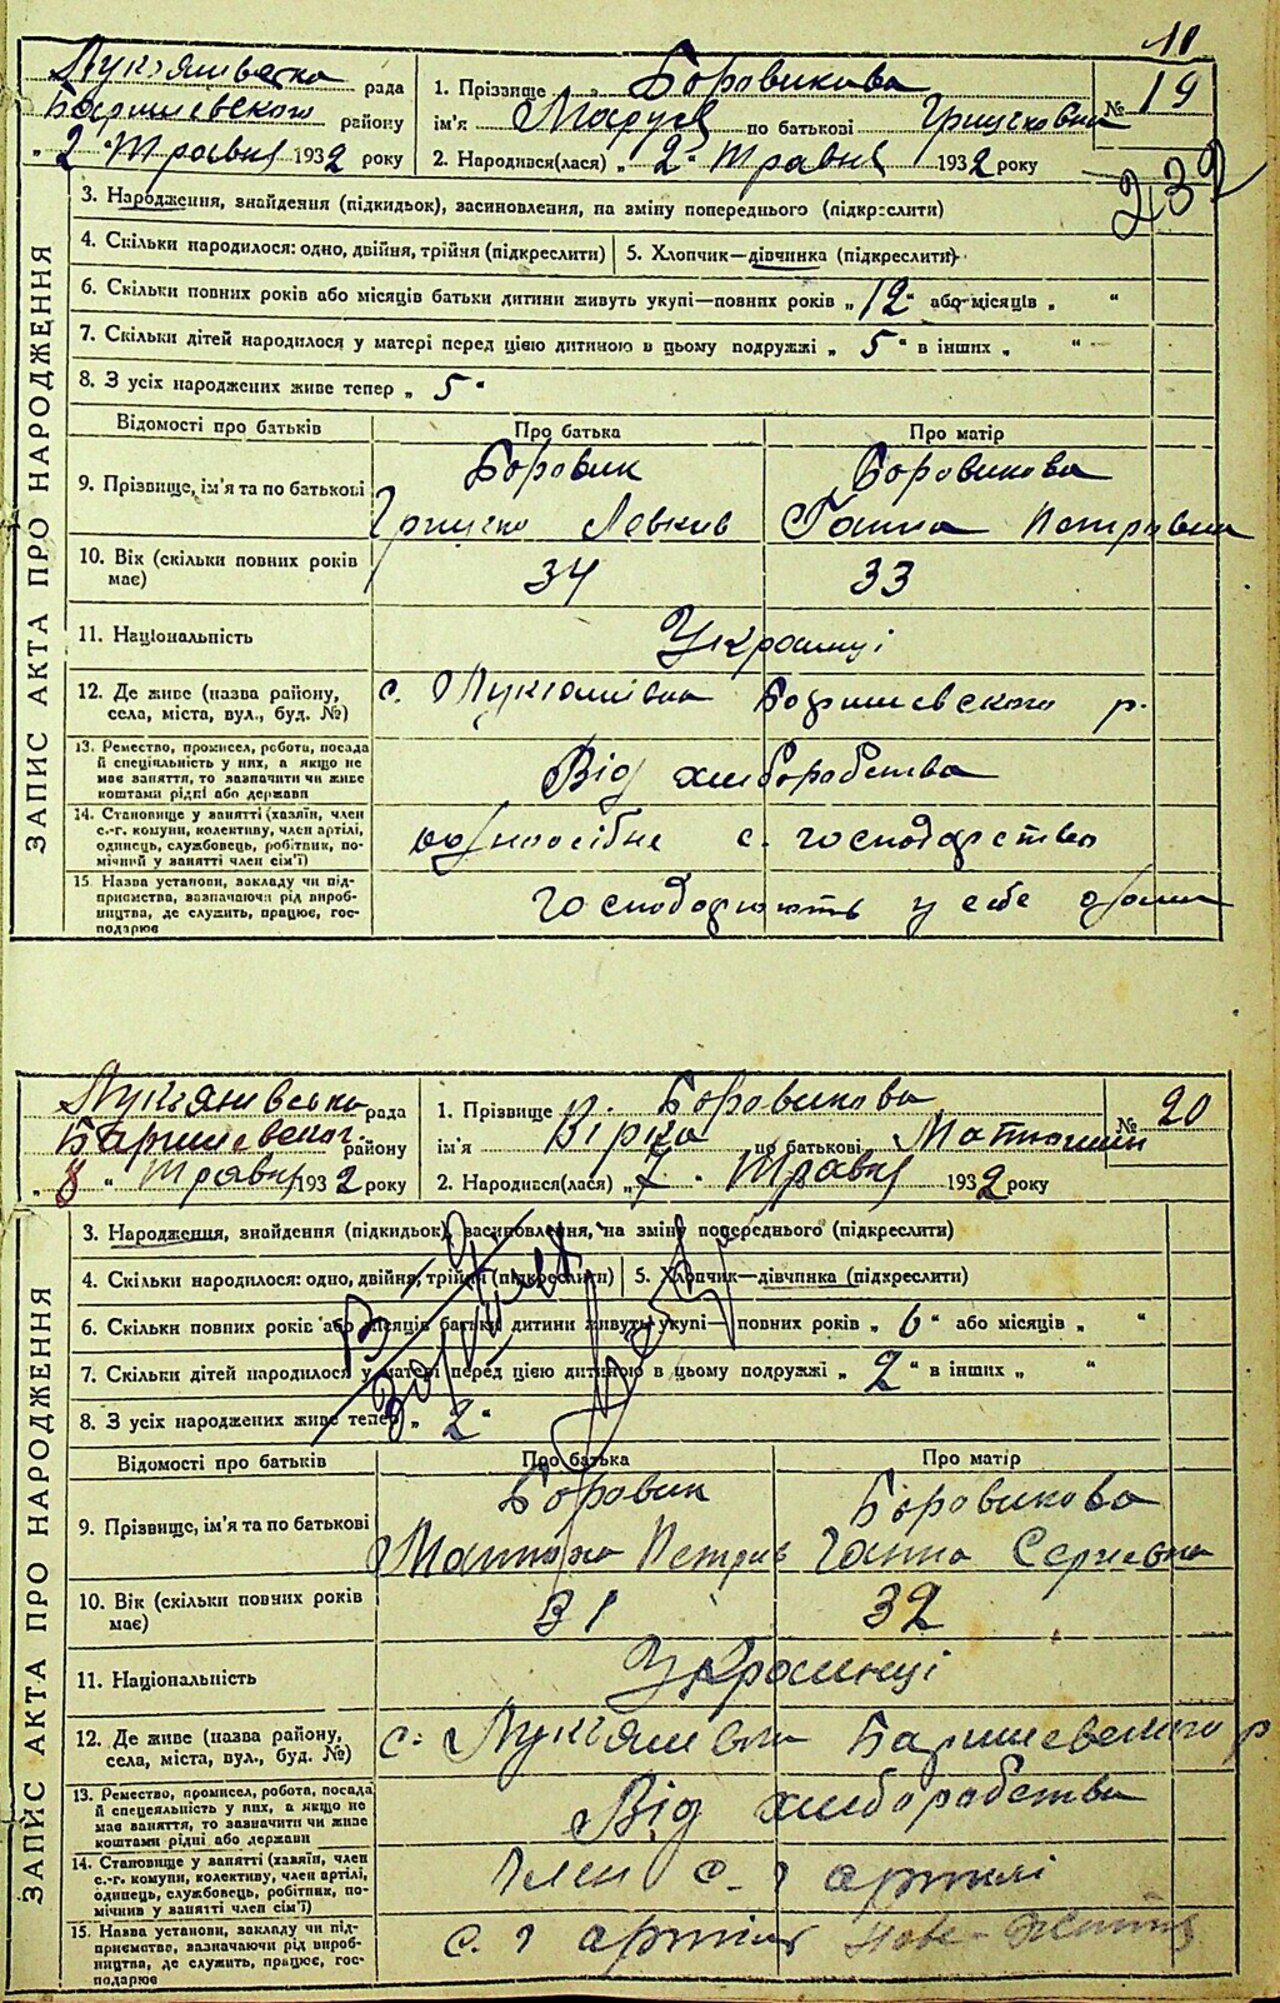 11
Лукъянивська рада
Баришевского району
„2“ Травня 1932 року
1. Прізвище Боровикова
ім'я Маруся по батькові Грицьковна
№ 19
2. Народився(лася) „2“ Травня 1932 року
232
ЗАПИС АКТА ПРО НАРОДЖЕННЯ
3. Народження, знайдення (підкидьок), засиновлення, на зміну попереднього (підкреслити)
4. Скільки народилося: одно, двійня, трійня (підкреслити) 5. Хлопчик—дівчинка (підкреслити)
6. Скільки повних років або місяців батьки дитини живуть укупі—повних років „12“ або місяців „ “
7. Скільки дітей народилося у матері перед цією дитиною в цьому подружжі „5“ в інших „ “
8. З усіх народжених живе тепер „5“
Відомості про батьків Про батька Про матір
9. Прізвище, ім'я та по батькові
Боровик Боровикова
Грицько Левків Ганна Петрівна
10. Вік (скільки повних років має) 34 33
11. Національність Українці
12. Де живе (назва району, села, міста, вул., буд. №) с. Лукіянівка Баришевского р.
13. Ремество, промисел, робота, посада й спеціяльність у них, а якщо не має заняття, то зазначити чи живе коштами рідні або держави
Від хліборобства
14. Становище у занятті (хазяїн, член с.-г. комуни, колективу, член артілі, одинець, службовець, робітник, помічний у занятті член сім'ї)
одноосібне с. господарство
15. Назва установи, закладу чи підприємства, зазначаючи рід виробництва, де служить, працює, господарює
господарюють у себе дома
Лукъянивська рада
Баришевског. району
„8“ Травня 1932 року
1. Прізвище Боровикова
ім'я Вірка по батькові Матюшин
№ 20
2. Народився(лася) „7“ Травня 1932 року
ЗАПИС АКТА ПРО НАРОДЖЕННЯ
3. Народження, знайдення (підкидьок), засиновлення, на зміну попереднього (підкреслити)
4. Скільки народилося: одно, двійня, трійня (підкреслити) 5. Хлопчик—дівчинка (підкреслити)
6. Скільки повних років або місяців батьки дитини живуть укупі—повних років „6“ або місяців „ “
7. Скільки дітей народилося у матері перед цією дитиною в цьому подружжі „2“ в інших „ “
8. З усіх народжених живе тепер „2“
Відомості про батьків Про батька Про матір
9. Прізвище, ім'я та по батькові
Боровик Боровикова
Матюха Петрів Ганна Сергиевна
10. Вік (скільки повних років має) 31 32
11. Національність Українці
12. Де живе (назва району, села, міста, вул., буд. №) с. Лукъянивка Баришевского р
13. Ремество, промисел, робота, посада й спецеяльність у них, а якщо не має заняття, то зазначити чи живе коштами рідні або держави
Від хліборобства
14. Становище у занятті (хазяїн, член с.-г. комуни, колективу, член артілі, одинець, службовець, робітник, помічник у занятті член сім'ї)
Член с. г артілі
15. Назва установи, закладу чи підприємства, зазначаючи рід виробництва, де служить, працює, господарює
с. г артіль Нове Життя